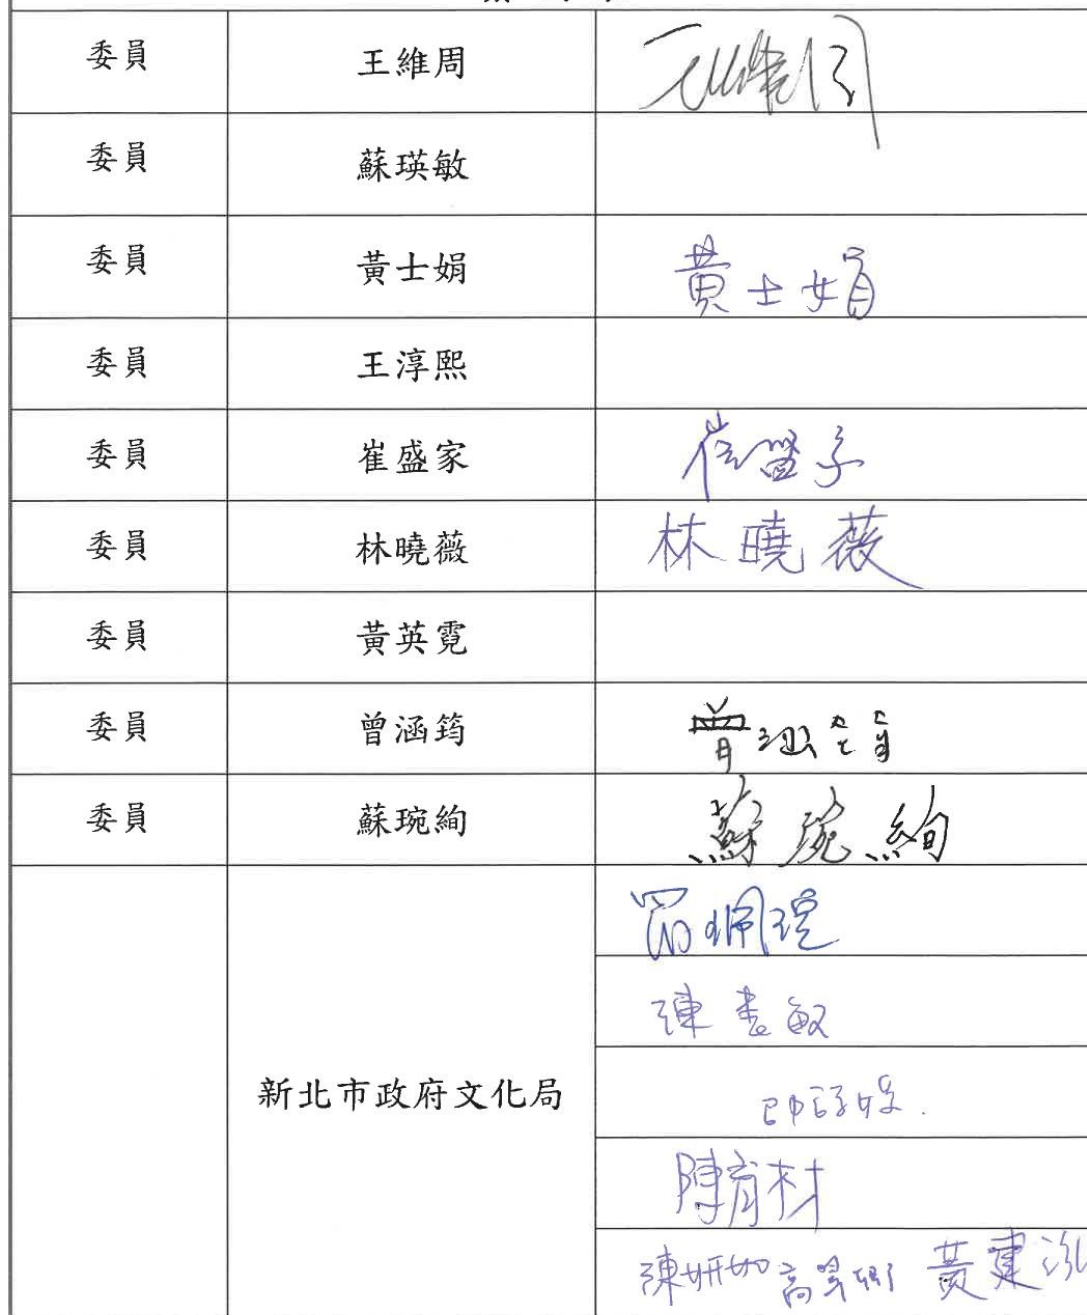 委員 王維周 王維周
委員 蘇瑛敏
委員 黃士娟 黃士娟
委員 王淳熙
委員 崔盛家 崔盛家
委員 林曉薇 林曉薇
委員 黃英霓
委員 曾涵筠 曾涵筠
委員 蘇琬絢 蘇琬絢
新北市政府文化局
陳書敏
陳育材
陳妍如 黃建泓